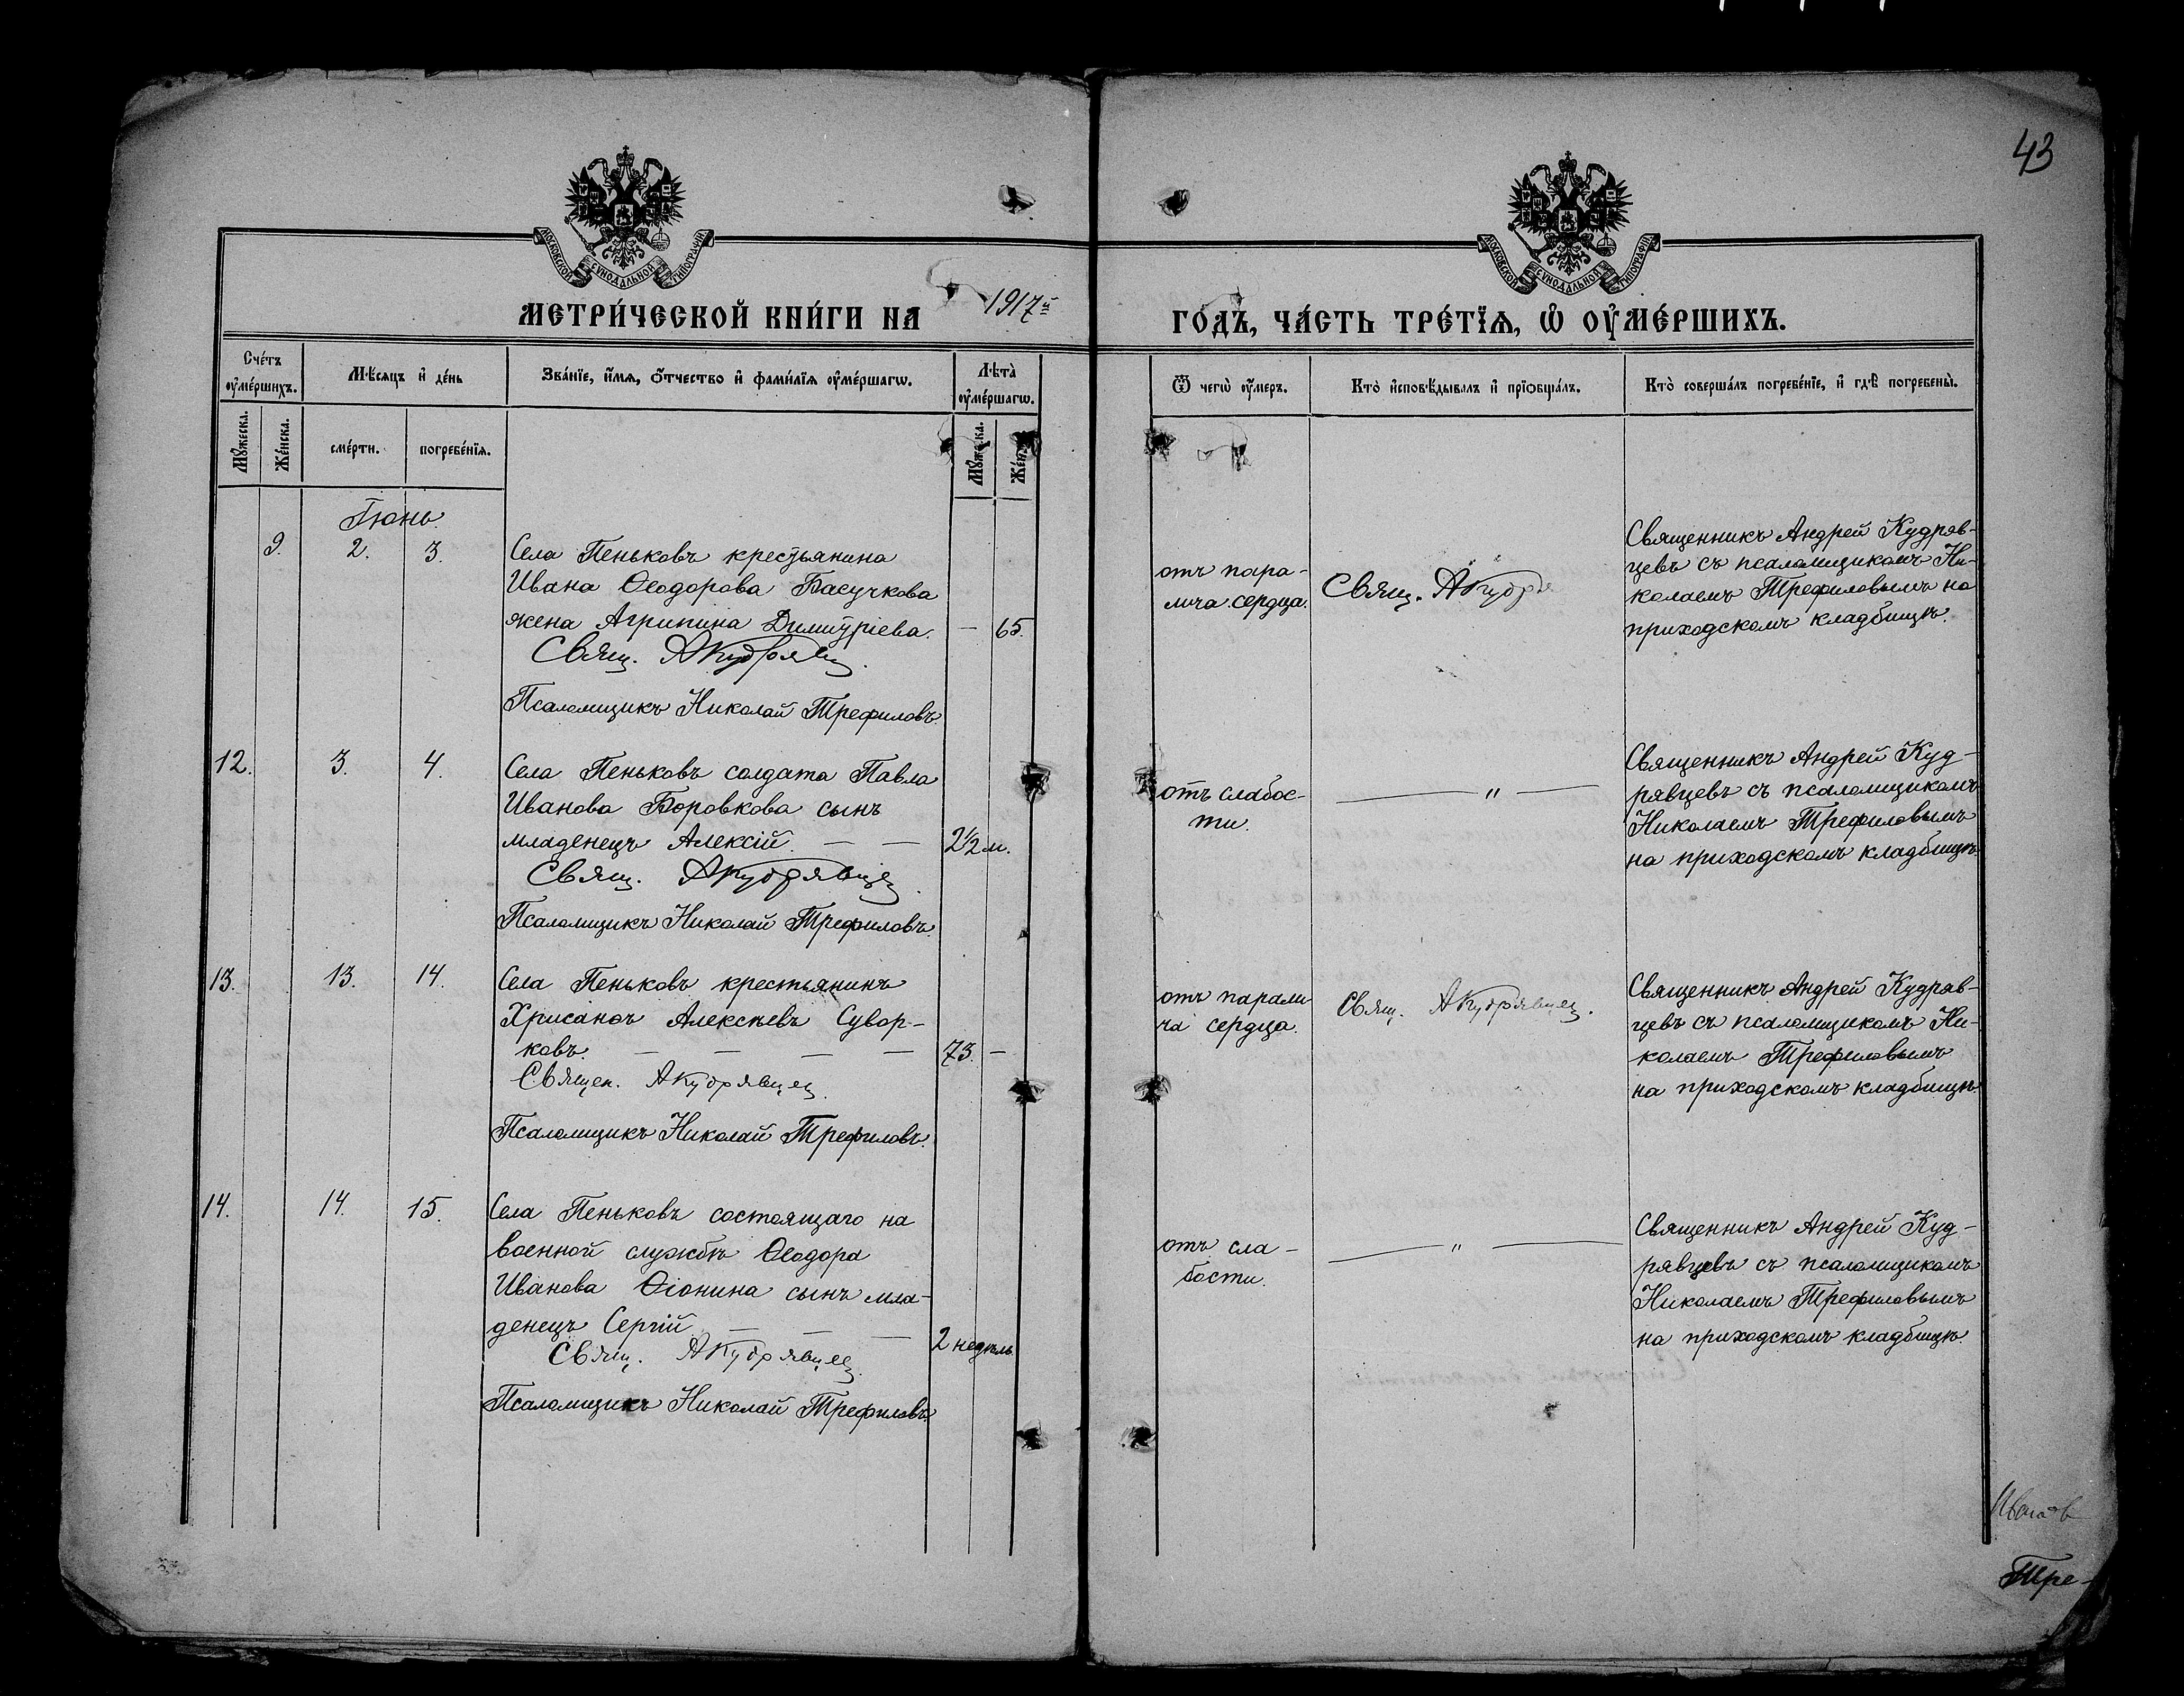 43
МОСКОВСКОЙ СѴНОДАЛЬНОЙ ТИПОГРАФІИ
МОСКОВСКОЙ СѴНОДАЛЬНОЙ ТИПОГРАФІИ
МЕТРИ́ЧЕСКОЙ КНИ́ГИ НА 1917й ГО́ДЪ, ЧА́СТЬ ТРЕ́ТЇѦ, Ѡ҆ ОУ҆МЕ́РШИХЪ.
Сче́тъ оу҆ме́ршихъ.
Мѣ́сяцъ и҆ де́нь
Зва́нїе, и҆́мѧ, ѻ҆́тчество и҆ фами́лїѧ оу҆ме́ршагѡ.
Лѣта̀ оу҆ме́ршагѡ.
Ѿ чегѡ̀ оу҆́меръ.
Кто̀ и҆сповѣ́дывалъ и҆ прїѻбща́лъ.
Кто̀ соверша́лъ погребе́нїе, и҆ гдѣ̀ погребены̀.
Мꙋ́жеска.
Же́нска.
сме́рти.
погребе́нїѧ.
Мꙋ́жеска.
Іюнь.
9. 2. 3.
Села Пеньковъ крестьянина
Ивана Ѳеодорова Басучкова
жена Агрипина Димитріева. — 65.
Свящ. АКудрявц
Псаломщикъ Николай Трефиловъ.
отъ пара-
лича сердца.
Свящ. АКудря
Священникъ Андрей Кудряв-
цевъ съ псаломщикомъ Ни-
колаемъ Трефиловымъ на
приходскомъ кладбищѣ.
12. 3. 4.
Села Пеньковъ солдата Павла
Иванова Боровкова сынъ
младенецъ Алексій. — — 2½ м.
Свящ. АКудрявцев
Псаломщикъ Николай Трефиловъ.
отъ слабос-
ти.
— „ —
Священникъ Андрей Куд-
рявцевъ съ псаломщикомъ
Николаемъ Трефиловымъ
на приходскомъ кладбищѣ.
13. 13. 14.
Села Пеньковъ крестьянинъ
Хрисанѳъ Алексѣевъ Сувор-
ковъ. — — — — 73. —
Священ. АКудрявцев.
Псаломщикъ Николай Трефиловъ.
отъ парали
ча сердца.
Свящ. АКудрявцев.
Священникъ Андрей Кудряв-
цевъ съ псаломщикомъ Ни-
колаемъ Трефиловымъ
на приходскомъ кладбищѣ.
14. 14. 15.
Села Пеньковъ состоящаго на
военной службѣ Ѳеодора
Иванова Ѳіонина сынъ мла-
денецъ Сергій — — — 2 недѣль
Свящ. АКудрявцев.
Псаломщикъ Николай Трефиловъ.
отъ сла-
бости.
— „ —
Священникъ Андрей Куд-
рявцевъ съ псаломщикомъ
Николаемъ Трефиловымъ
на приходскомъ кладбищѣ.
Тре-